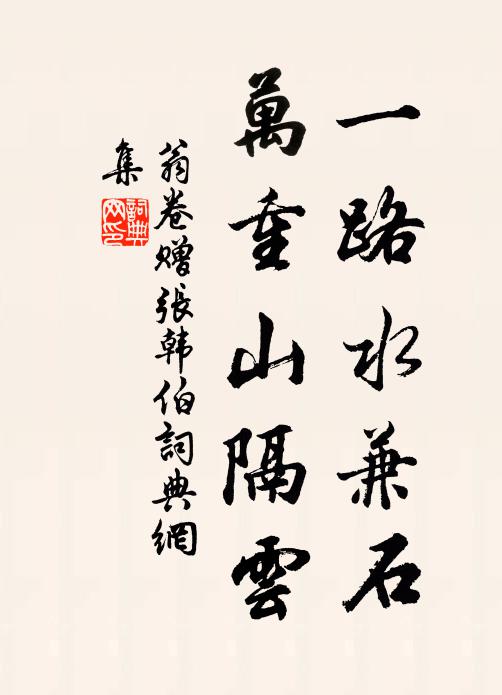 一路水兼石
萬重山隔雲
翁卷贈張韩伯詞典網
集
詞典
网印